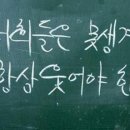 너희들은 못생겨
항상 웃어야 한